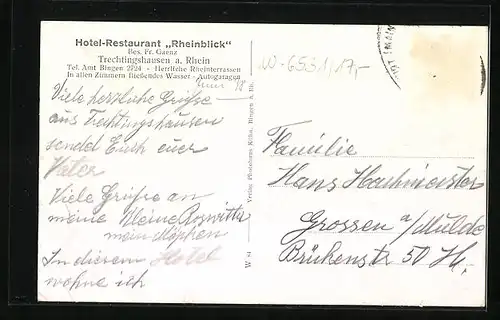 Hotel-Restaurant „Rheinblick"
Bes. Fr. Gaenz
Trechtingshausen a. Rhein
Tel. Amt Bingen 2724 - Herrliche Rheinterrassen
In allen Zimmern fließendes Wasser - Autogaragen
W-6531/17,-
Viele herzliche Grüsse
aus Trechtingshausen
sendet Euch euer
Vater
Viele Grüsse an
meine kleine Roswitta
mein Möpchen
In diesem Hotel
wohne ich
W 81
Verlag Photohaus Kühn, Bingen a. Rh.
Familie
Hans Hachmeister
Grossen a/Mulde
Brückenstr 50 H.